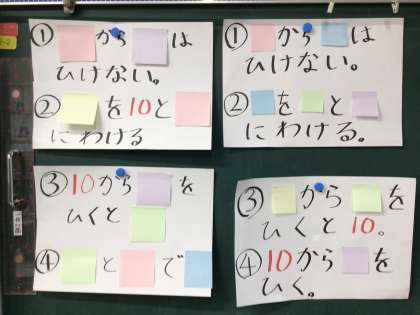 ① から は
ひけない。
② を10と
にわける
③10から を
ひくと
④ と で
① から は
ひけない。
② を と
にわける。
③ から を
ひくと10。
④10から を
ひく。